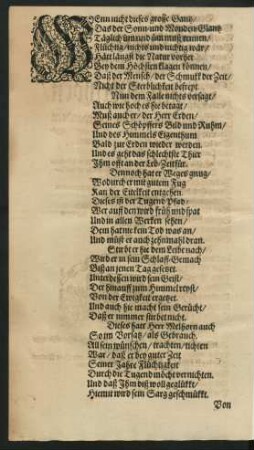 WEnn nicht dieses grosse Gantz/
Das der Sonn- und Monden Glantz
Täglich um und um muß rennen/
Flüchtig/ nichts und nichtig wär/
Hätt längst die Natur vorher
Bey dem Höchsten klagen können/
Daß der Mensch/ der Schmuck der Zeit/
Nicht der Sterblichkeit befreyt.
Nun dem Falle nichts versagt/
Auch wie hoch es hie betagt/
Muß auch er/ der Herr der Erden/
Seines Schöpffers Bild und Ruhm/
Und des Himmels Eigenthum
Bald zur Erden wieder werden.
Und es geht das schlechtste Thier
Ihm offt an der Leb-Zeit für.
Dennoch hat er Weges gnug/
Wodurch er mit gutem Fug
Kan der Eitelkeit entgehen
Dieses ist der Tugend Pfad/
Wer auff den wird früh und spat
Und in allen Wercken sehen/
Dem hat nie kein Tod was an/
Und müst er auch zehnmahl dran.
Stirbt er hie dem Leibe nach/
Wird er in sein Schlaff-Gemach
Biß an jenen Tag gesetzet
Unterdessen wird sein Geist/
Der hinauff zum Himmel reyst/
Von der Ewigkeit ergetzet.
Und auch hie macht sein Gerücht/
Daß er nimmer stirbet nicht.
Dieses hatt Herr Melhorn auch
So im Vorsatz/ als Gebrauch.
All sein wünschen/ trachten/ tichten
War/ daß er bey guter Zeit
Seiner Jahre Flüchtigkeit
Durch die Tugend möcht vernichten.
Und daß Ihm diß woll geglückt/
Hiemit wird sein Sarg geschmückt.
Von